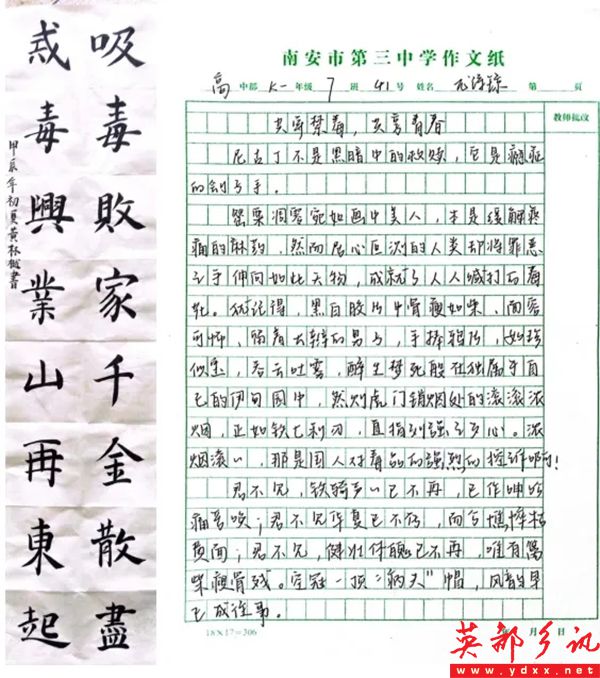 吸毒敗家千金散盡
戒毒興業山再東起
甲辰年初夏黃林書
南安市第三中学作文纸
高中部 高一年级 7班 41号 姓名 第 頁
教师批改
禁毒，共享青春
尼古丁不是黑暗中的救赎，它是癌症
的刽子手。
罂粟凋零宛如画中美人，本是缓解疼
痛的麻药，然而居心叵测的人类却将罪恶
之手伸向如此天物，成就了人人喊打的毒
。犹记得，黑白胶片中骨瘦如柴、面容
可怖、着长辫的男子，手捧鸦片，如珍
似宝，吞云吐雾，醉生梦死般在独属于自
己的伊甸园中，然则虎门销烟处的滚滚浓
烟，正如铁七利刃，直指列强之心。浓
烟滚滚，那是国人对毒品的强烈的控诉呀！
君不见，铁骑声声已不再，已作呻吟
痛苦唤；君不见华夏已不仍，而今憔悴枯
黄面；君不见，健壮体魄已不再，唯有
柴瘦骨残。空冠一顶“病夫”帽，风韵早
已成往事。
18×17=306
年 月 日
英都乡讯
www.ydxx.net